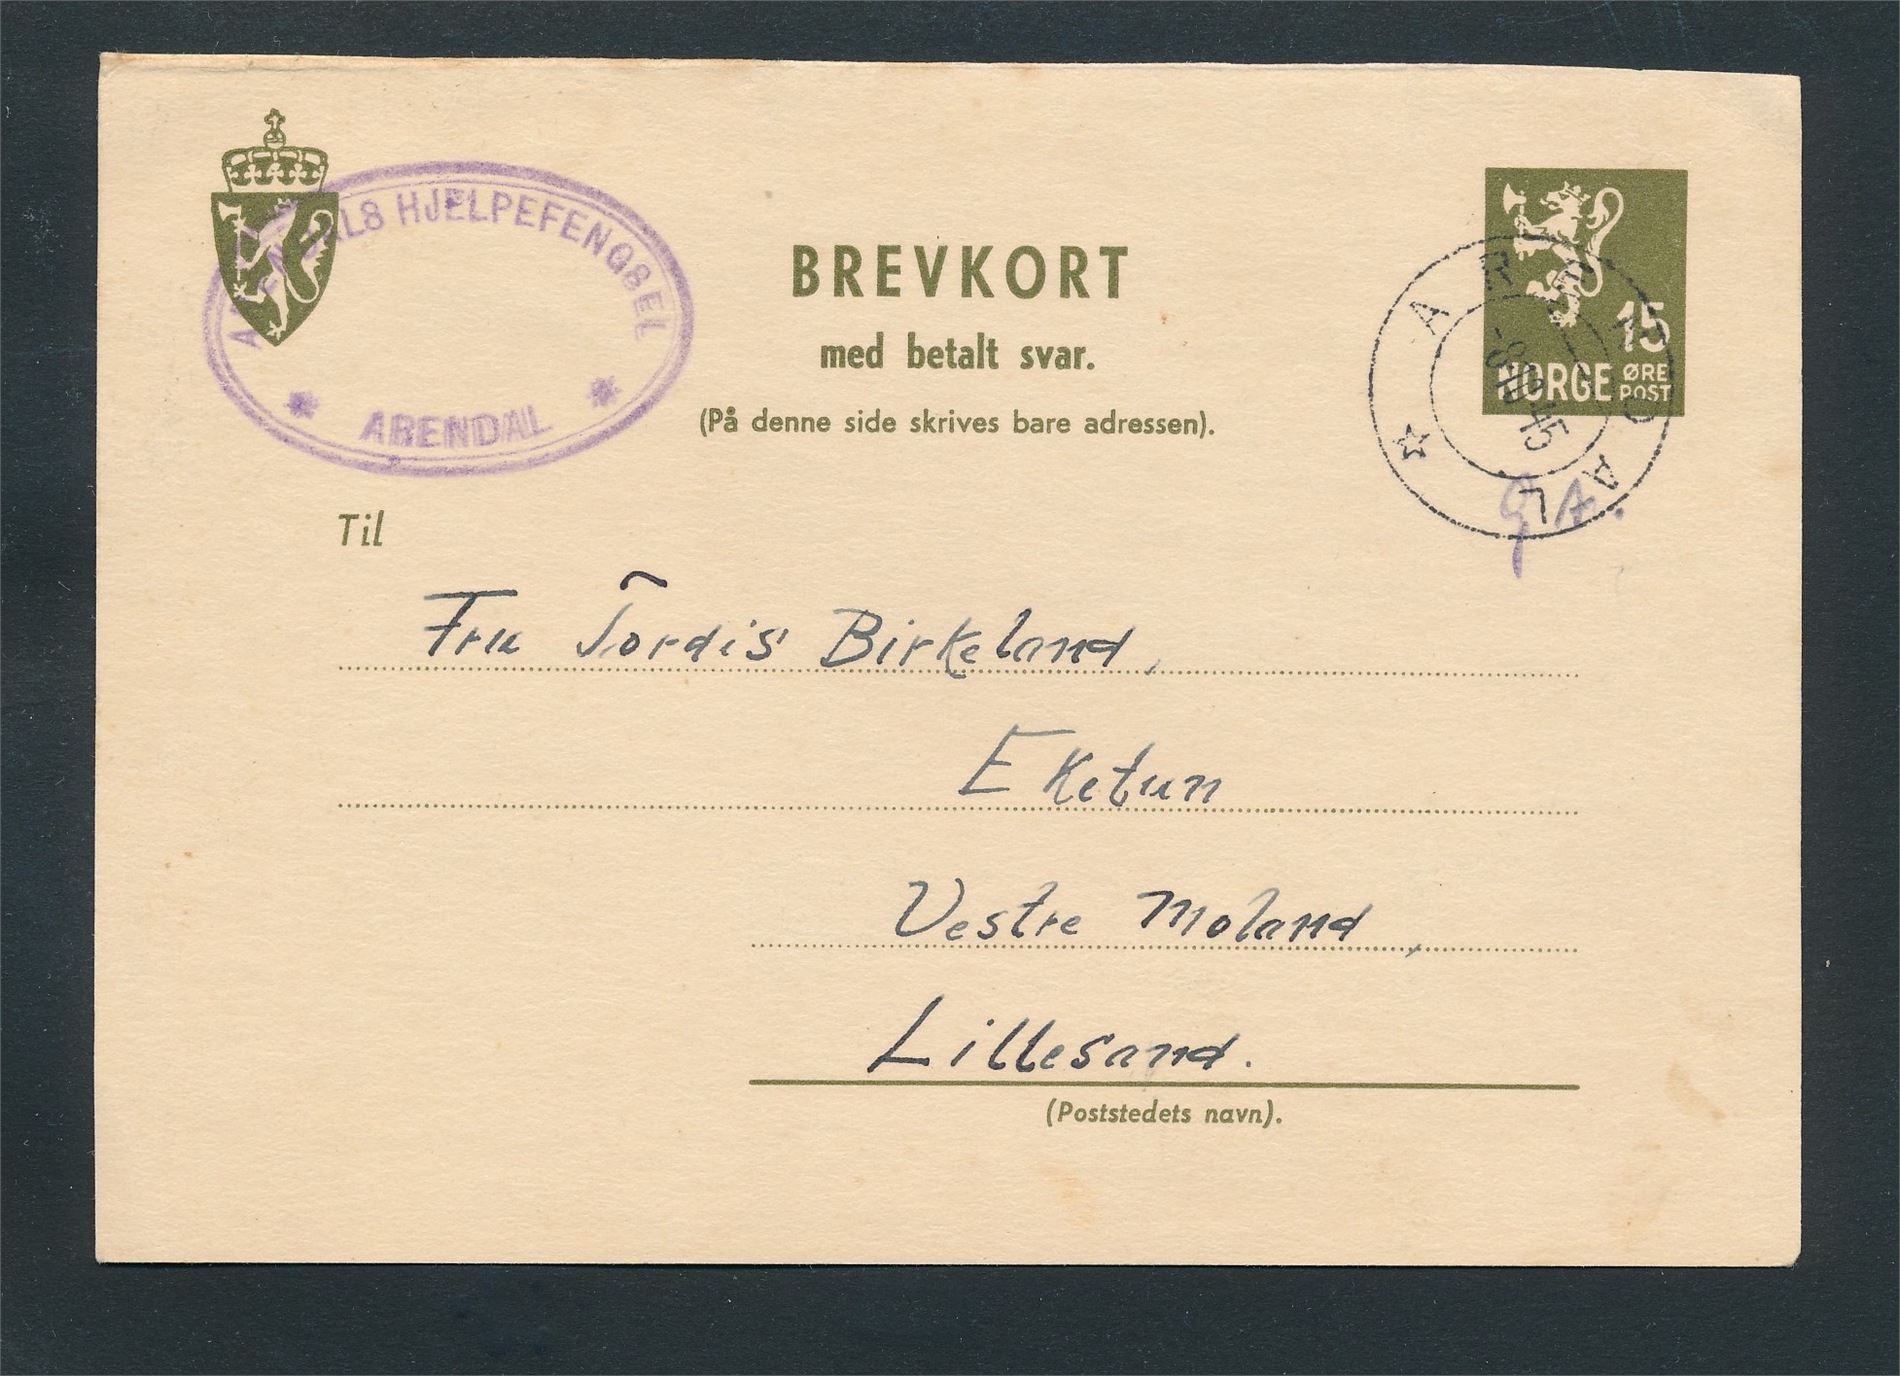 ARENDALS HJELPEFENGSEL
ARENDAL
BREVKORT
med betalt svar.
(På denne side skrives bare adressen).
15
NORGE ØRE POST
ARENDAL
-8.10.45
Til
Fru Tordis Birkeland,
Eketun
Vestre Moland,
Lillesand.
(Poststedets navn).